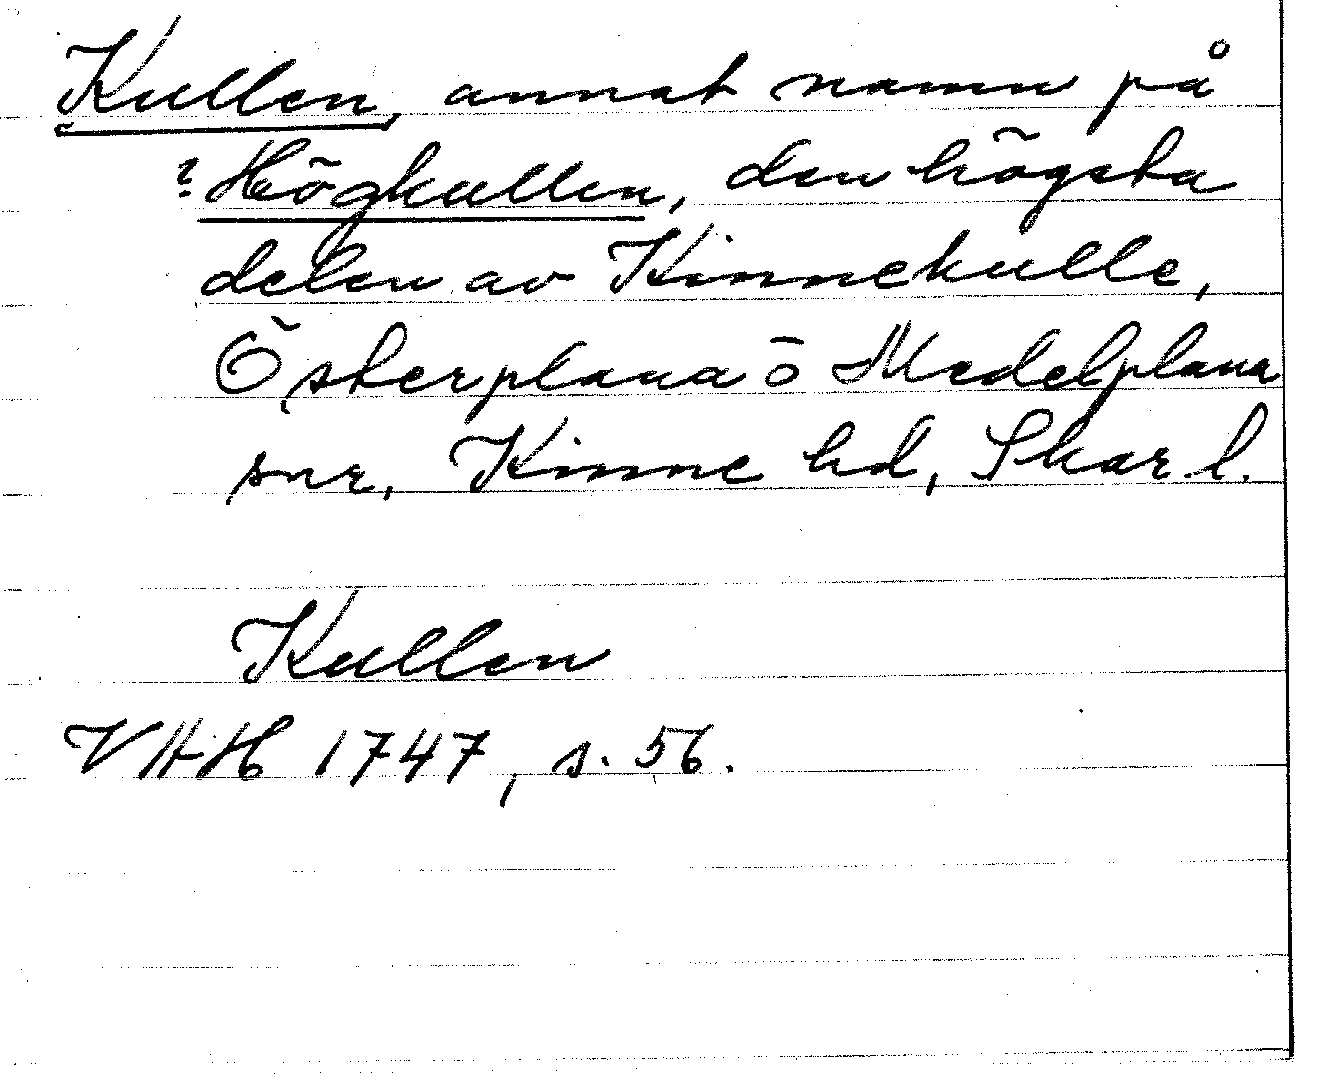 Kullen, annat namn på
? Högkullen, den högsta
delen av Kinnekulle,
Österplana o Medelplana
snr, Kinne hd, Skar. l.
Kullen
VHH 1747, s. 56.